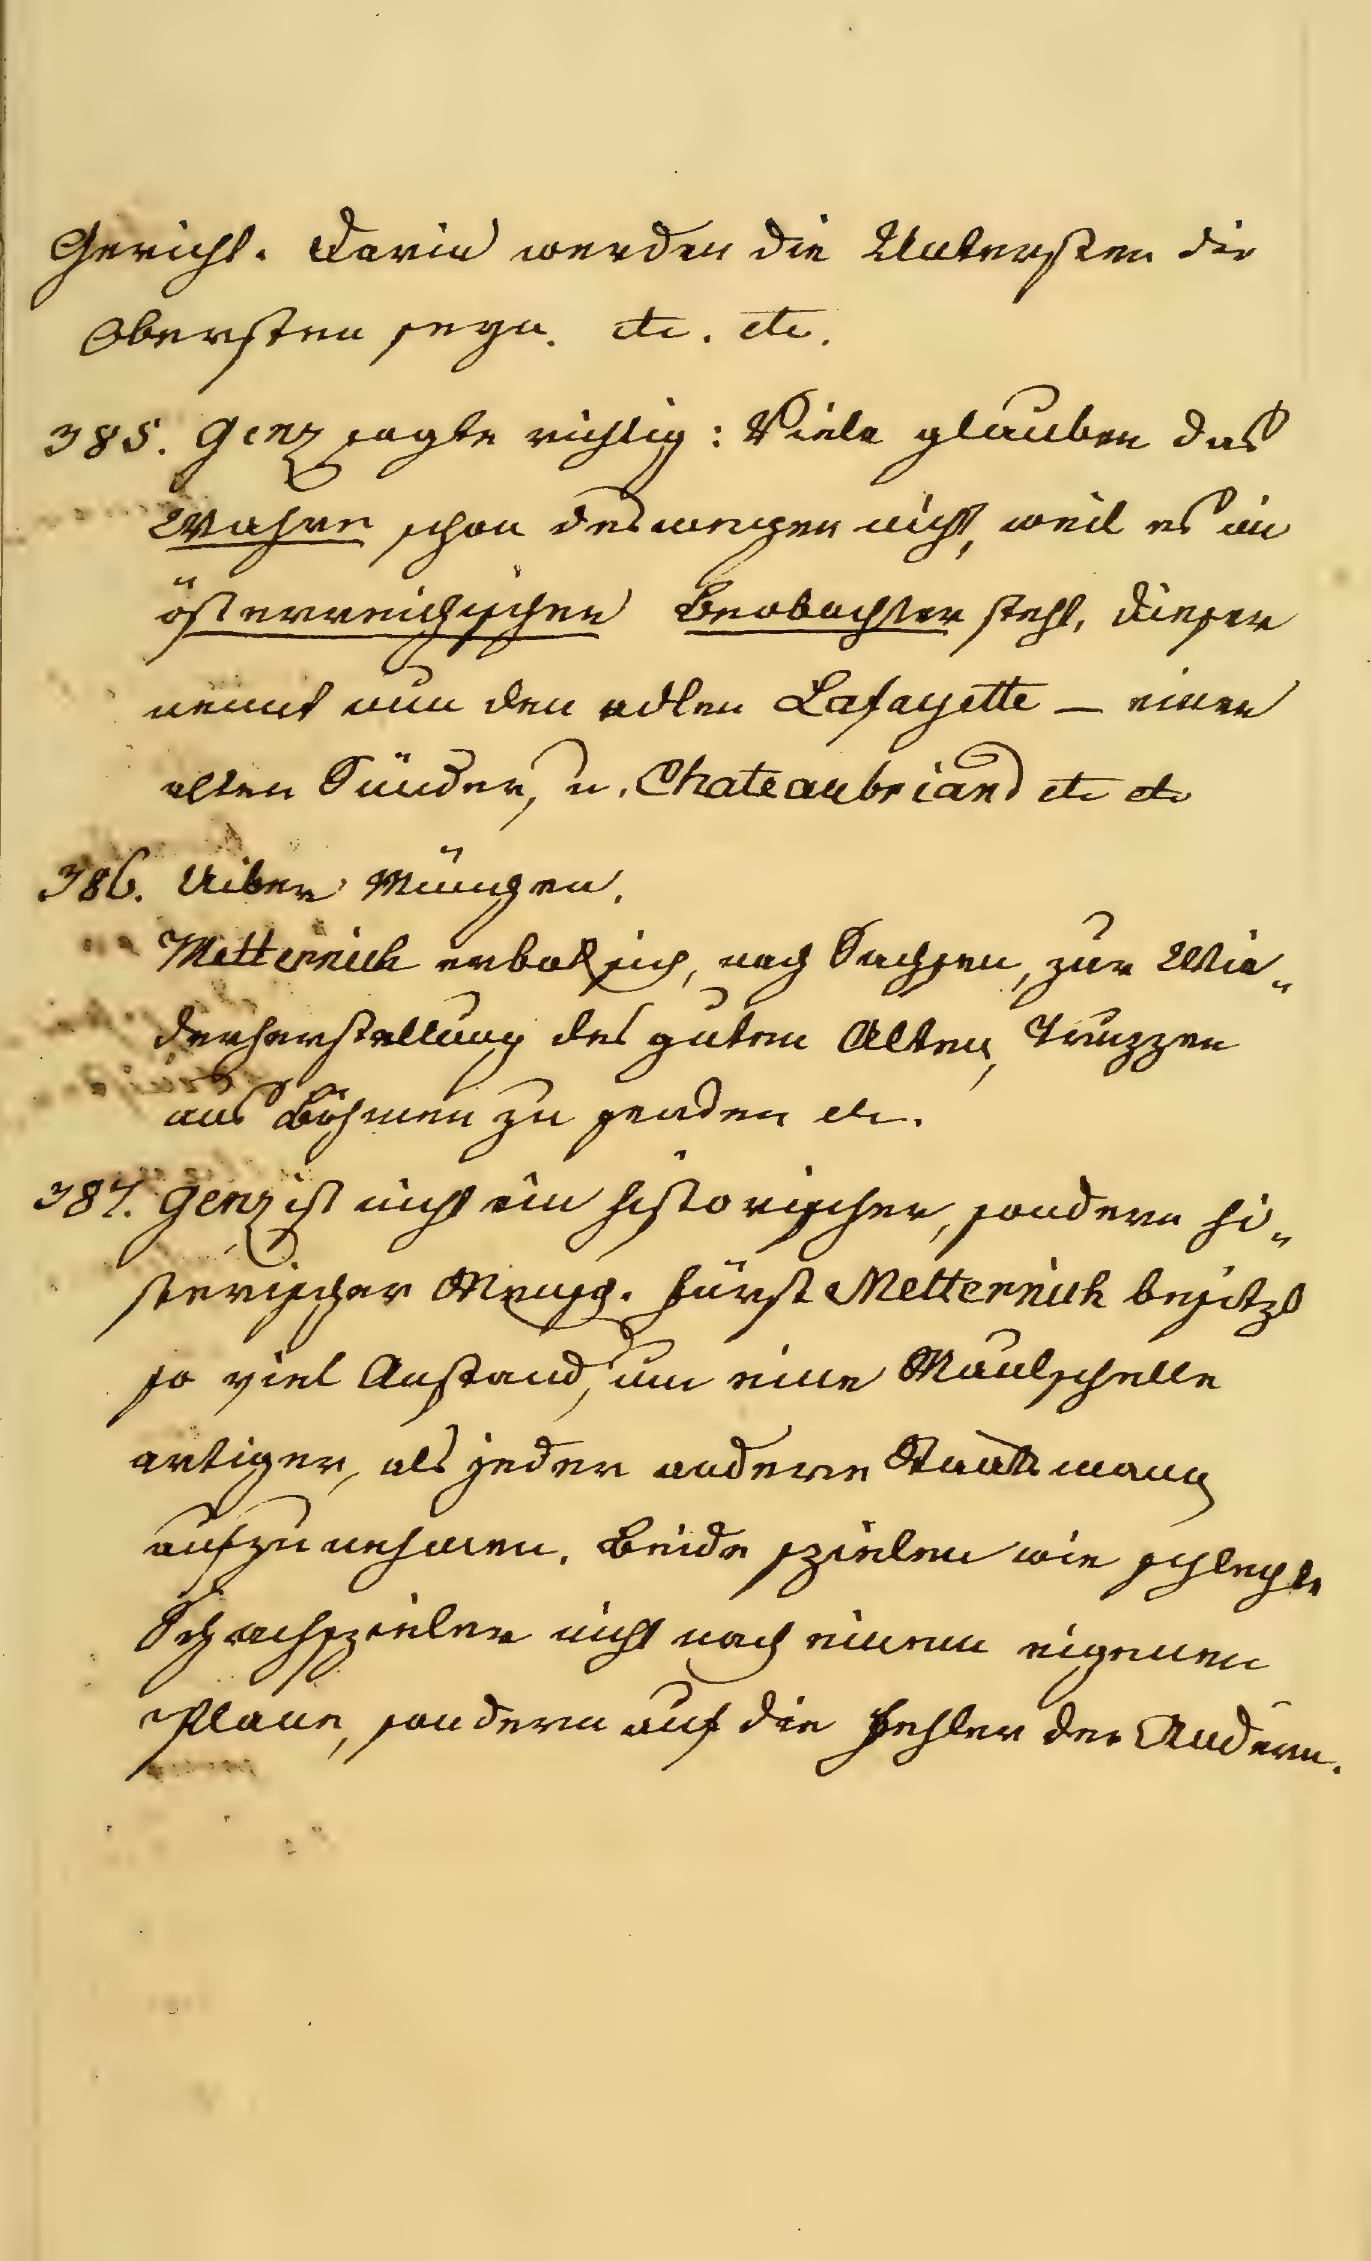 Gericht. Darin werden die Untersten die
Obersten seyn. etc. etc.
385. Genz sagte richtig: Viele glauben das
Wahre schon deswegen nicht, weil es im
österreichischen Beobachter steht, dieser
nennt nun den edlen Lafayette — einen
alten Sünder, u. Chateaubriand etc etc
386. Uiber Münzen.
Metternich erbot sich, nach Sachsen, zur Wie„
derherstellung des guten Alten, Truppen
aus Böhmen zu senden etc.
387. Genz ist nicht ein historischer, sondern hi„
sterischer Mensch. Fürst Metternich besitzt
so viel Anstand, um eine Maulschelle
artiger, als jeder andere Staatsmann
aufzunehmen. Beide spielen wie schlechte
Schachspieler nicht nach einem eigenen
Plane, sondern auf die Fehler der Andern.